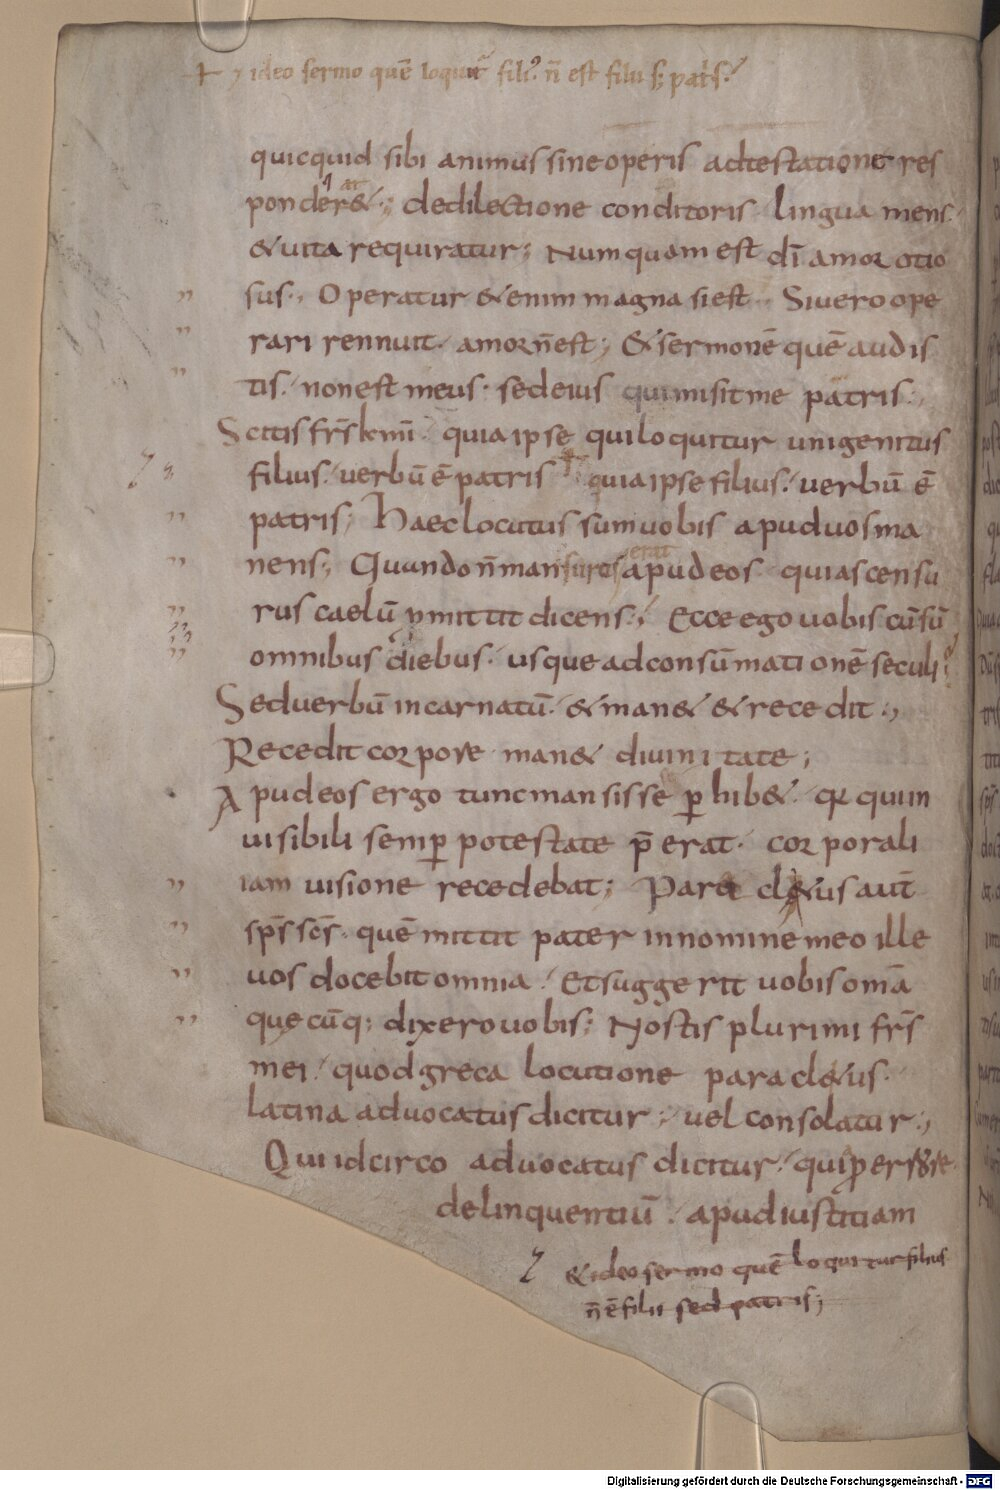 ⁊ ideo sermo quē loquit̄ fili⁹. n̄ est filii s; patris.
quicquid sibi animus sine operis adtestatione res
ponder&; dedilectione conditoris lingua mens
&uita requiratur; Numquam est dī amor otio
sus; Operatur &enim magna siest. Siuero ope
rari rennuit. amor n̄ est; & sermonē quē audis
tis. non est meus. sed eius qui misit me patris;
Scitis fr̄s kmī. quia ipse qui loquitur unigenitus
filius. uerbū ē patris quia ipse filius. uerbū ē
patris; Haec locutus sum uobis apud uos ma
nens; Quando n̄ mansurus erat apud eos quias censu
rus caelū ꝓmittit dicens; Ecce ego uobis cū sū
omnibus diebus. usque ad consūmationē seculi;
Sed uerbū incarnatū. & man& & recedit;
Recedit corpore man& diuinitate;
Apud eos ergo tunc mansisse ꝑhib&. qr̄ qui in
uisibili semꝑ potestate p̄erat. corporali
iam uisione recedebat; Paracl&us aūt
sp̄s sc̄s. quē mittit pater in nomine meo ille
uos docebit omnia. Et suggerit uobis omā
quecūq; dixero uobis; Nostis plurimi fr̄s
mei. quod greca locutione paracl&us.
latina aduocatus dicitur; uel consolatur;
Qui idcirco aduocatus dicitur. qui ꝓ errore
delinquentiū. apud iustitiam
&ideo sermo quē loquitur filius
n̄ ē filii sed patris;
Digitalisierung gefördert durch die Deutsche Forschungsgemeinschaft - DFG